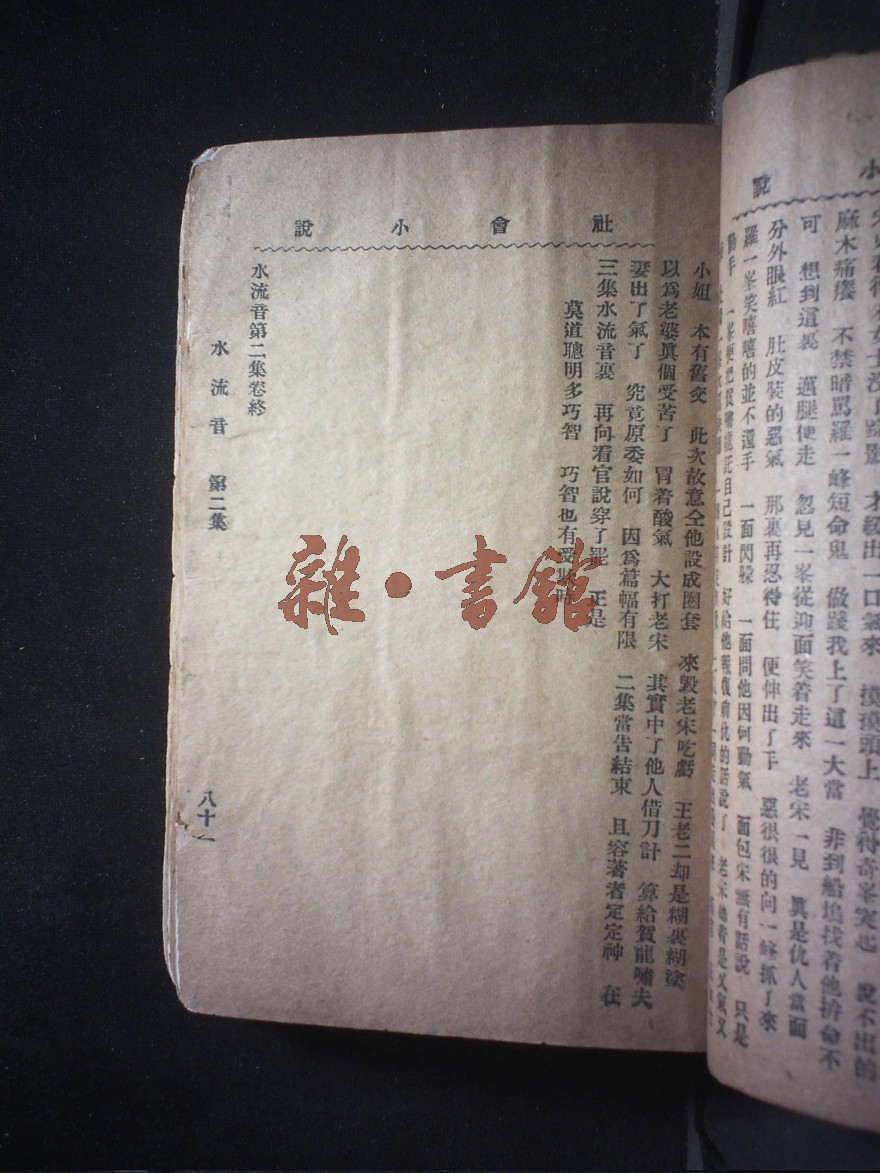 說 小
麻木痛癢 不禁暗罵羅一峰短命鬼 做踐我上了這一大當 非到船塢找着他拚命不
可 想到這裏 邁腿便走 忽見一峯從迎面笑着走來 老宋一見 眞是仇人當面
分外眼紅 肚皮裝的惡氣 那裏再忍得住 便伸出了手 惡很很的向一峰抓了來
羅一峯笑嘻嘻的並不還手 一面閃躲 一面問他因何動氣 面包宋無有話說 只是
社會小說
小姐 本有舊交 此次故意仝他設成圈套 來毀老宋吃虧 王老二却是糊裏糊塗
以爲老婆眞個受苦了 冒着酸氣 大打老宋 其實中了他人借刀計 算給賀龍嘯夫
妻出了氣了 究竟原委如何 因爲篇幅有限 二集當告結束 且容著者定定神 在
三集水流音裏 再向看官說穿了罷 正是
莫道聰明多巧智 巧智也有受欺時
水流音第二集卷終
水流音 第二集
八十一
雜·書館